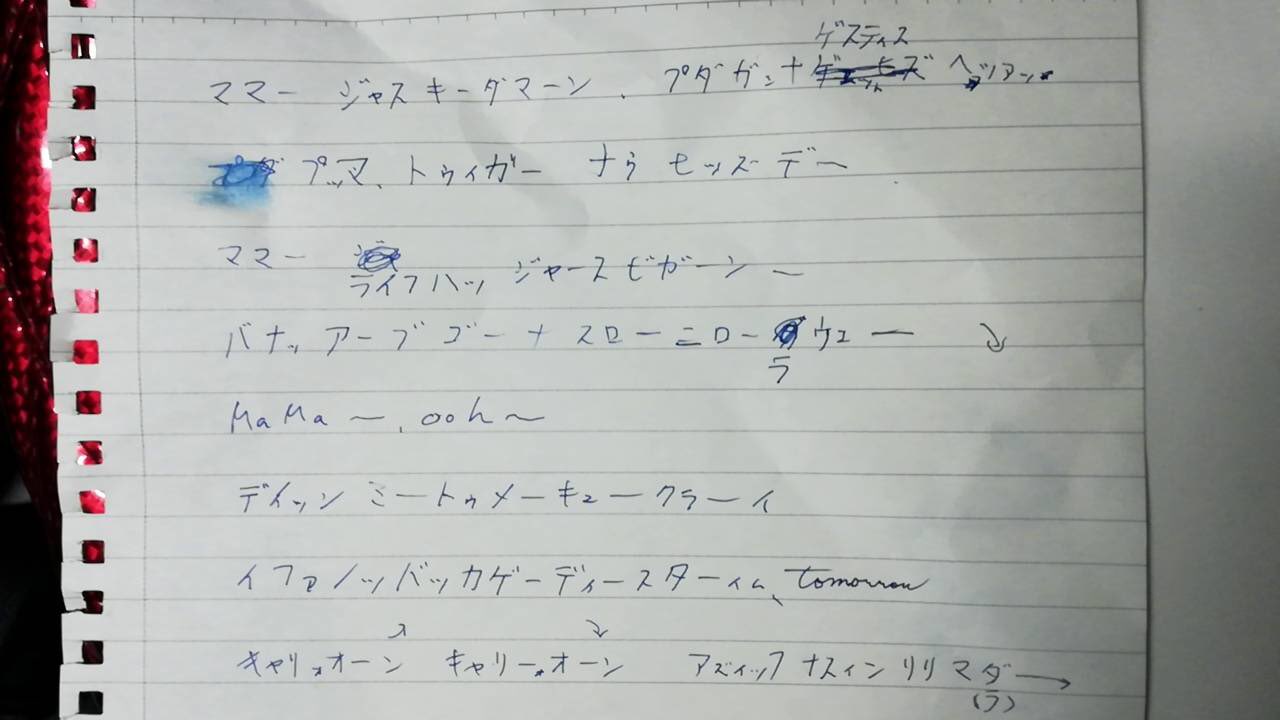 ママー ジャスキーダマーン、プダガンナ ゲスティス ヘッ
プッマ、トゥィガー ナゥ ヒッズデー
ママー ライフハッ ジャースビガーン ー
バナッ アーブ ゴーナ スローニローラウェー
MaMa〜, ooh〜
ディッン ミートゥメーキュークラーィ
イファノッバッカゲーディースターィム、tomorrow
キャリ オーン キャリー オーン アズィッフ ナスィンリリマダ
(ラ)